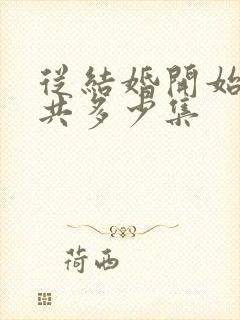 從結婚開始
共多少集
荷西